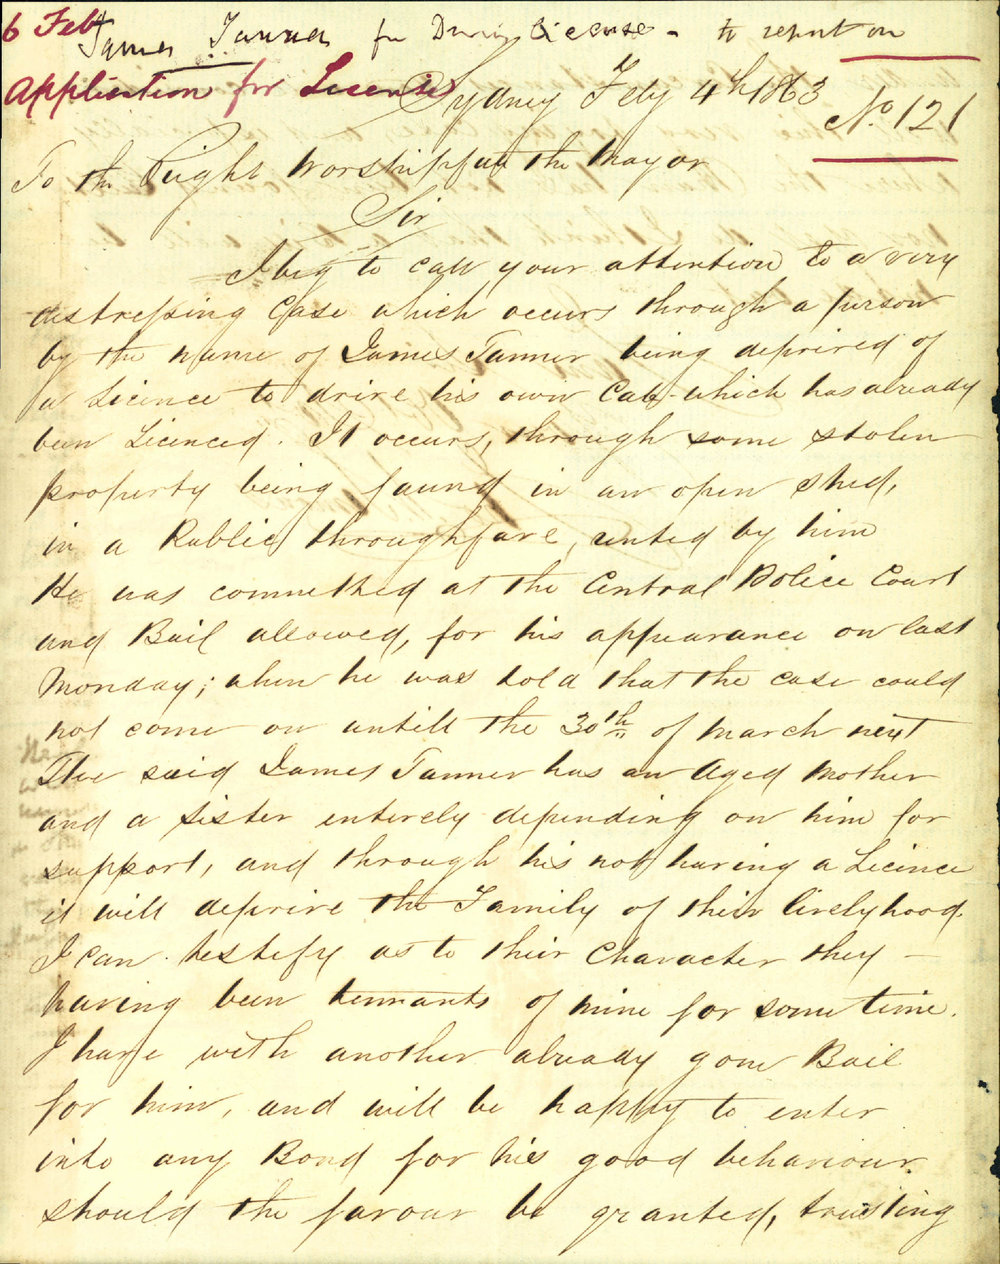 6 Feb
James Tanner for Driving License - to report on
Application for License
Sydney Feby 4th 1863
No. 121
To the Right Worshipful the Mayor
Sir
I beg to call your attention to a very
distressing Case which occurs through a person
by the name of James Tanner being deprived of
a Licence to drive his own Cab which has already
been Licenced. It occurs, through some stolen
property being found in an open shed,
in a Public throughfare, rented by him
He was committed at the Central Police Court
and Bail allowed, for his appearance on last
Monday; when he was told that the case could
not come on untill the 30th of March next
The said James Tanner has an Aged Mother
and a Sister enterely depending on him for
support, and through his not having a Licence
it will deprive the Family of their livelyhood.
I can testify as to their Character they -
having been tennants of mine for some time.
I have with another already gone Bail
for him, and will be happy to enter
into any Bond for his good behaviour.
should the favour be granted, trusting